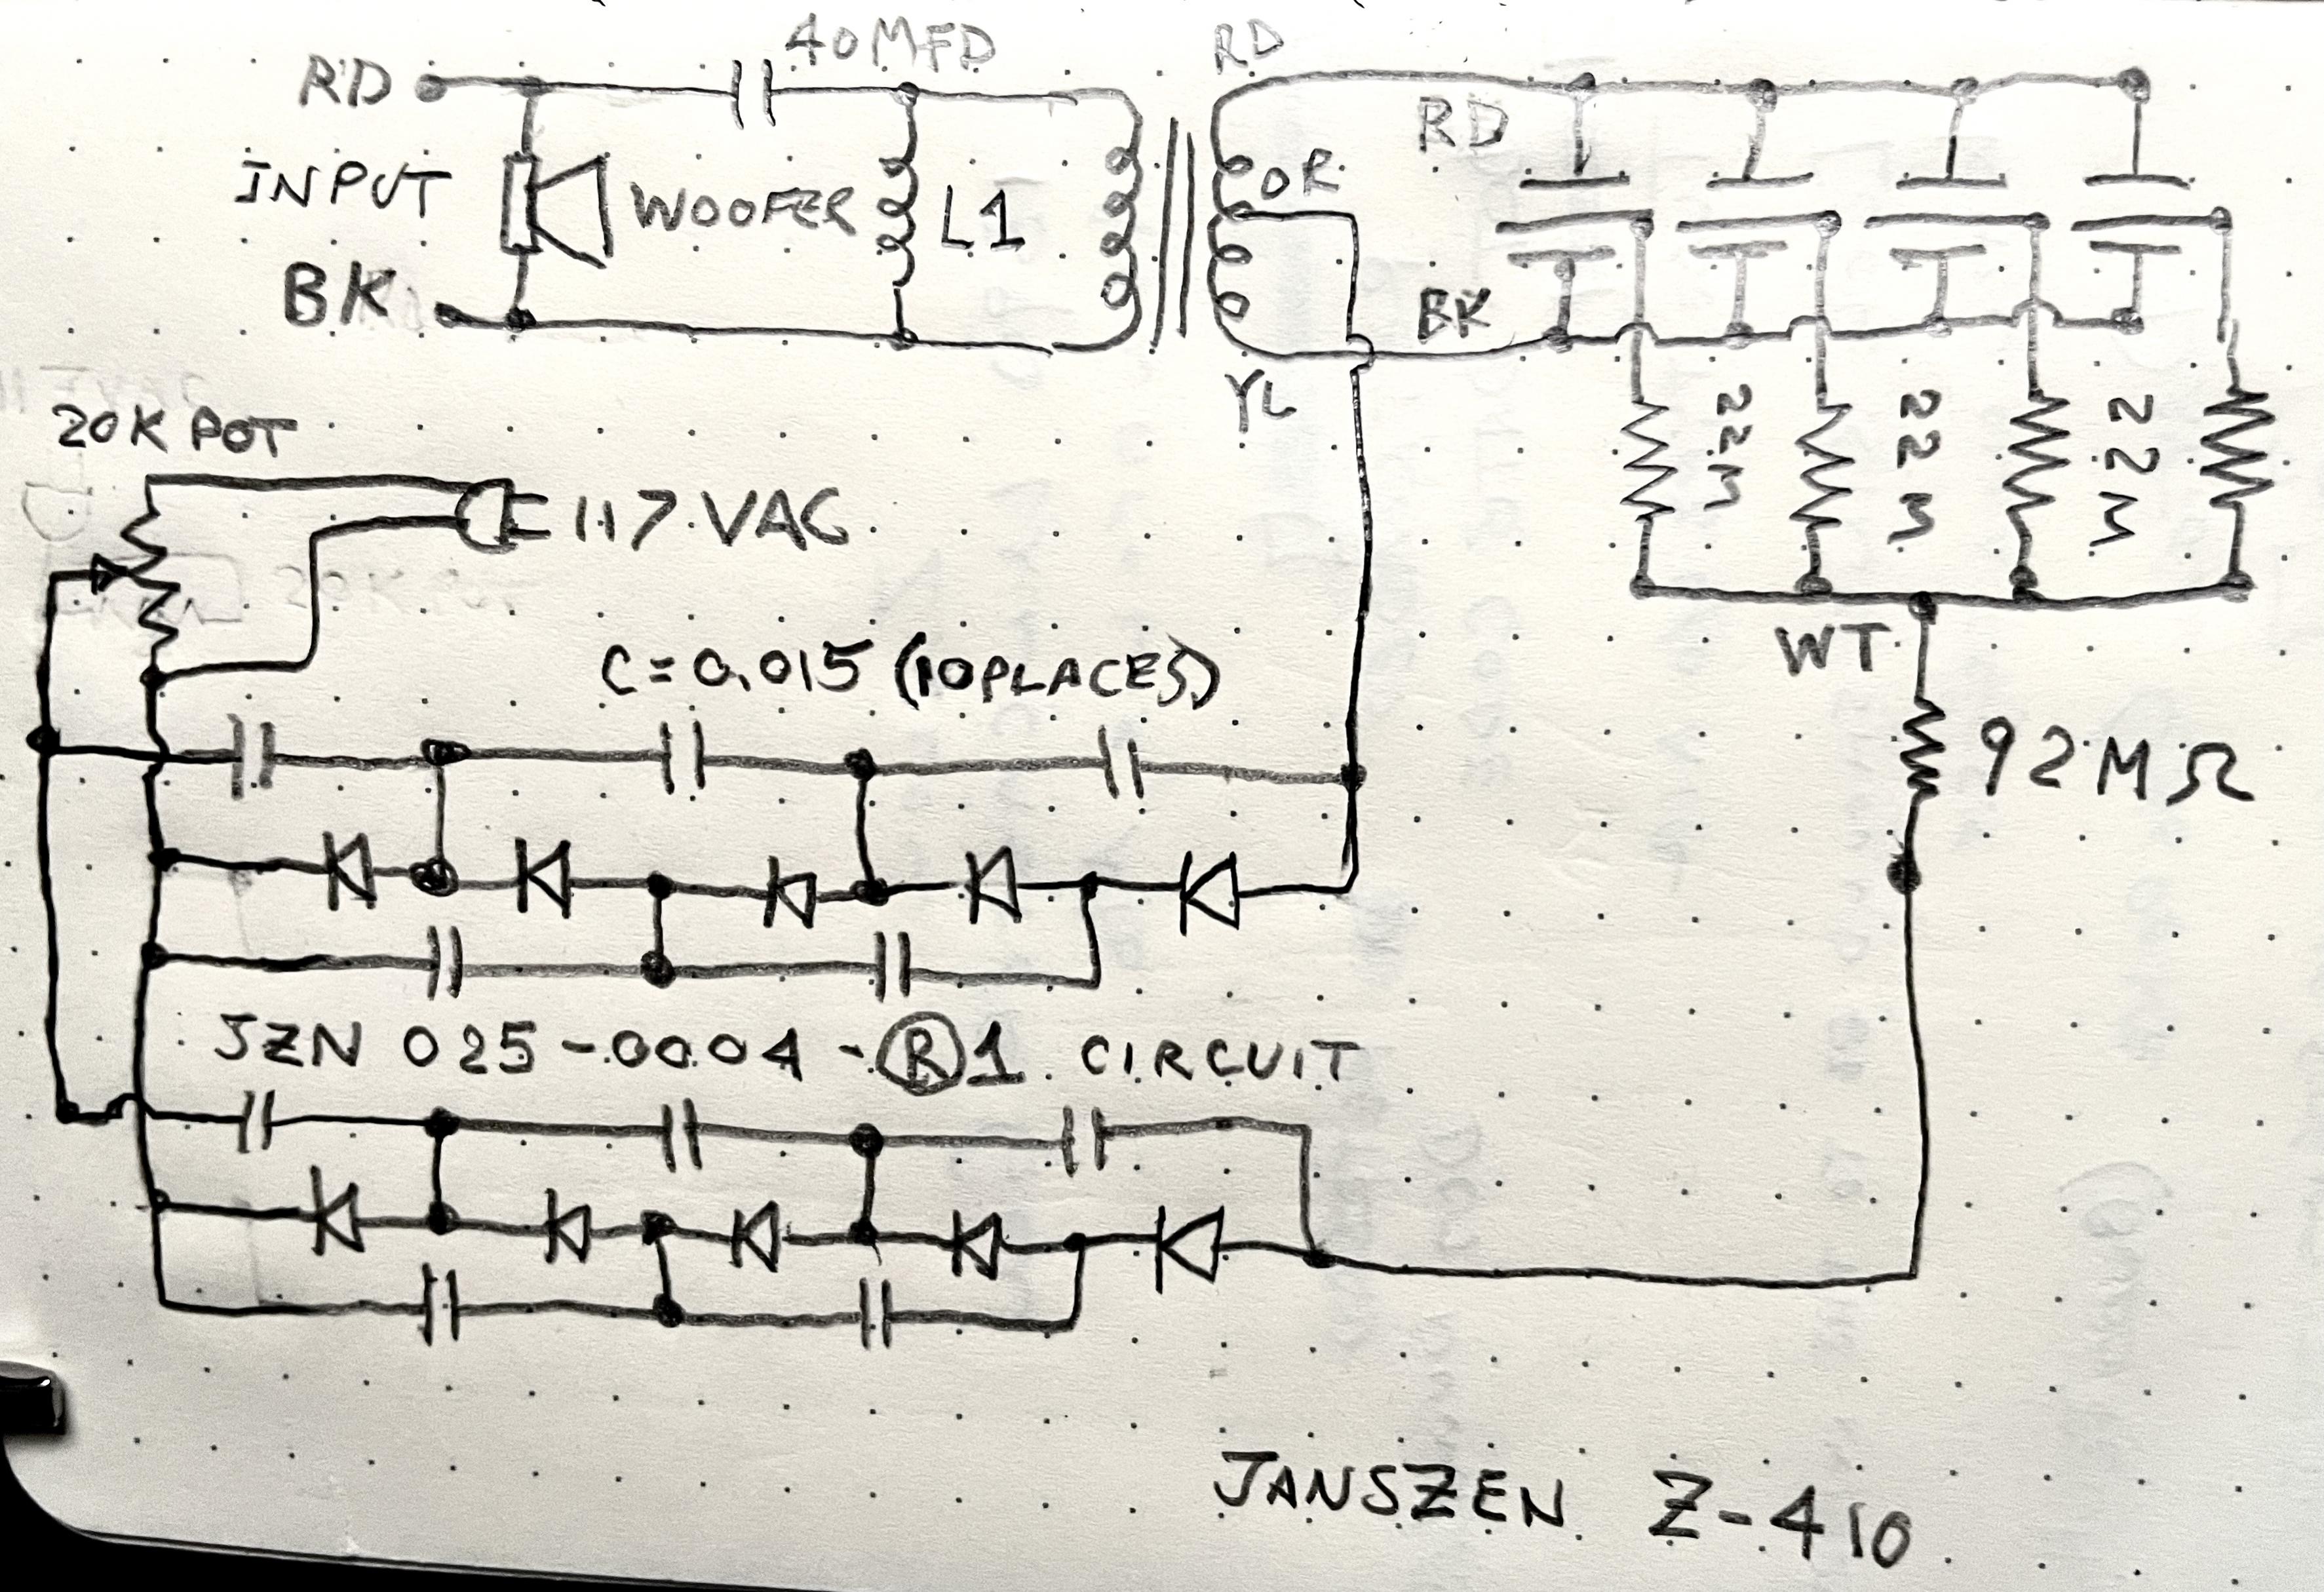 40MFD
RD
RD
RD
INPUT
WOOFER
L1
OR
BK
BK
YL
20K POT
117 VAC
22M
22M
22M
C=0.015 (10PLACES)
WT
92MΩ
JZN 025-0004-R1 CIRCUIT
JANSZEN Z-410